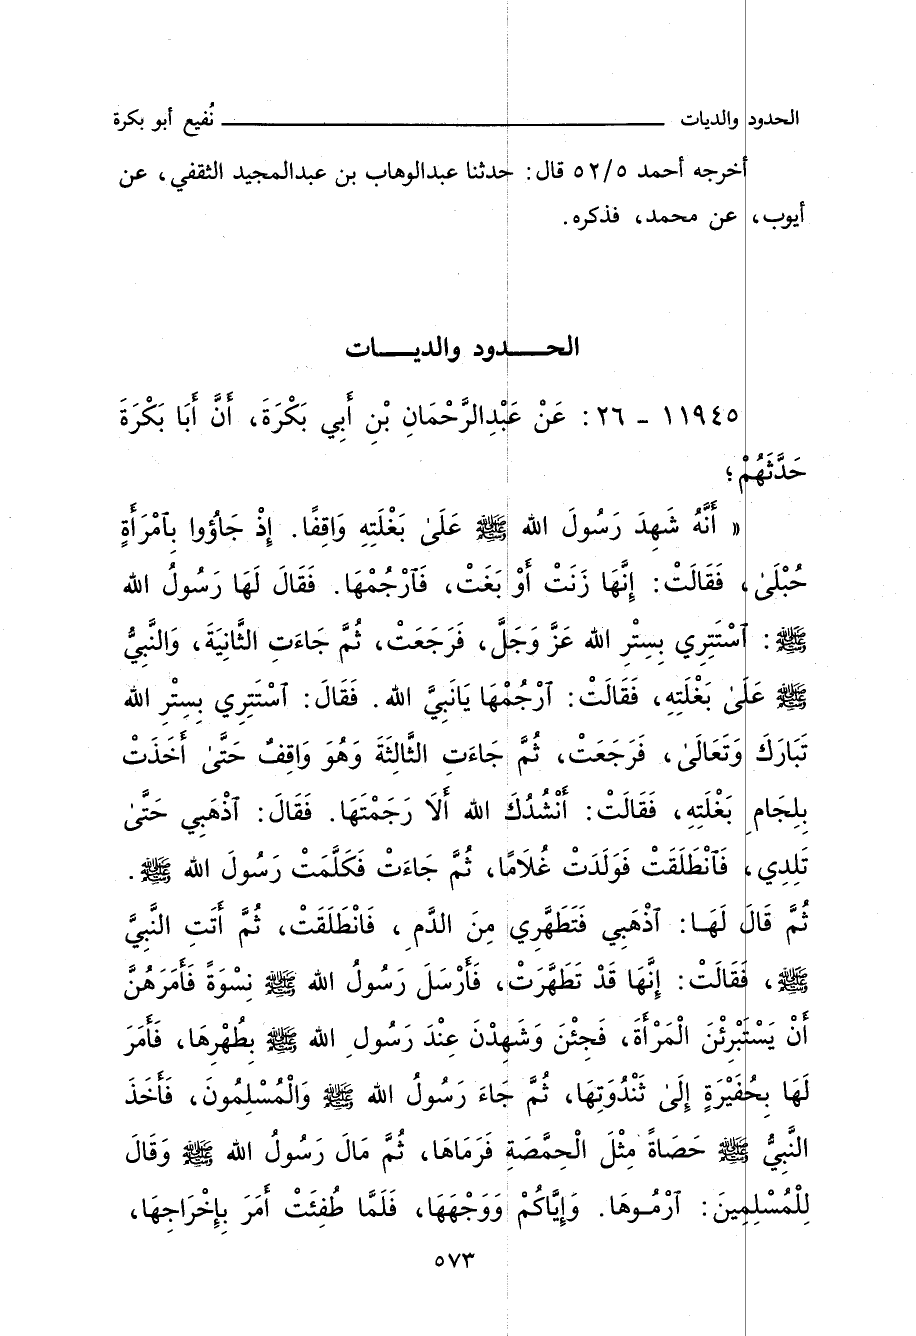 الحدود والديات ــــــــــــــــــــ نُفيع أبو بكرة
أخرجه أحمد ٥/٥٢ قال: حدثنا عبدالوهاب بن عبدالمجيد الثقفي، عن
أيوب، عن محمد، فذكره.
الحـــدود والديـــات
١١٩٤٥ - ٢٦: عَنْ عَبْدِالرَّحْمَانِ بْنِ أَبِي بَكْرَةَ، أَنَّ أَبَا بَكْرَةَ
حَدَّثَهُمْ؛
« أَنَّهُ شَهِدَ رَسُولَ الله ﷺ عَلَىٰ بَغْلَتِهِ وَاقِفًا. إِذْ جَاؤُوا بِٱمْرَأَةٍ
حُبْلَىٰ، فَقَالَتْ: إِنَّهَا زَنَتْ أَوْ بَغَتْ، فَٱرْجُمْهَا. فَقَالَ لَهَا رَسُولُ الله
ﷺ: ٱسْتَتِرِي بِسِتْرِ الله عَزَّ وَجَلَّ، فَرَجَعَتْ، ثُمَّ جَاءَتِ الثَّانِيَةَ، وَالنَّبِيُّ
ﷺ عَلَىٰ بَغْلَتِهِ، فَقَالَتْ: ٱرْجُمْهَا يَانَبِيَّ الله. فَقَالَ: ٱسْتَتِرِي بِسِتْرِ الله
تَبَارَكَ وَتَعَالَىٰ، فَرَجَعَتْ، ثُمَّ جَاءَتِ الثَّالِثَةَ وَهُوَ وَاقِفٌ حَتَّىٰ أَخَذَتْ
بِلِجَامِ بَغْلَتِهِ، فَقَالَتْ: أَنْشُدُكَ الله أَلَا رَجَمْتَهَا. فَقَالَ: ٱذْهَبِي حَتَّىٰ
تَلِدِي، فَٱنْطَلَقَتْ فَوَلَدَتْ غُلَامًا، ثُمَّ جَاءَتْ فَكَلَّمَتْ رَسُولَ الله ﷺ.
ثُمَّ قَالَ لَهَـا: ٱذْهَبِي فَتَطَهَّرِي مِنَ الدَّمِ، فَانْطَلَقَتْ، ثُمَّ أَتَتِ النَّبِيَّ
ﷺ، فَقَالَتْ: إِنَّهَا قَدْ تَطَهَّرَتْ، فَأَرْسَلَ رَسُولُ الله ﷺ نِسْوَةً فَأَمَرَهُنَّ
أَنْ يَسْتَبْرِئْنَ الْمَرْأَةَ، فَجِئْنَ وَشَهِدْنَ عِنْدَ رَسُولِ الله ﷺ بِطُهْرِهَا، فَأَمَرَ
لَهَا بِحُفَيْرَةٍ إِلَىٰ ثَنْدُوَتِهَا، ثُمَّ جَاءَ رَسُولُ الله ﷺ وَالْمُسْلِمُونَ، فَأَخَذَ
النَّبِيُّ ﷺ حَصَاةً مِثْلَ الْحِمَّصَةِ فَرَمَاهَا، ثُمَّ مَالَ رَسُولُ الله ﷺ وَقَالَ
لِلْمُسْلِمِينَ: ٱرْمُـوهَا. وَإِيَّاكُمْ وَوَجْهَهَا، فَلَمَّا طُفِئَتْ أَمَرَ بِإِخْرَاجِهَا،
٥٧٣